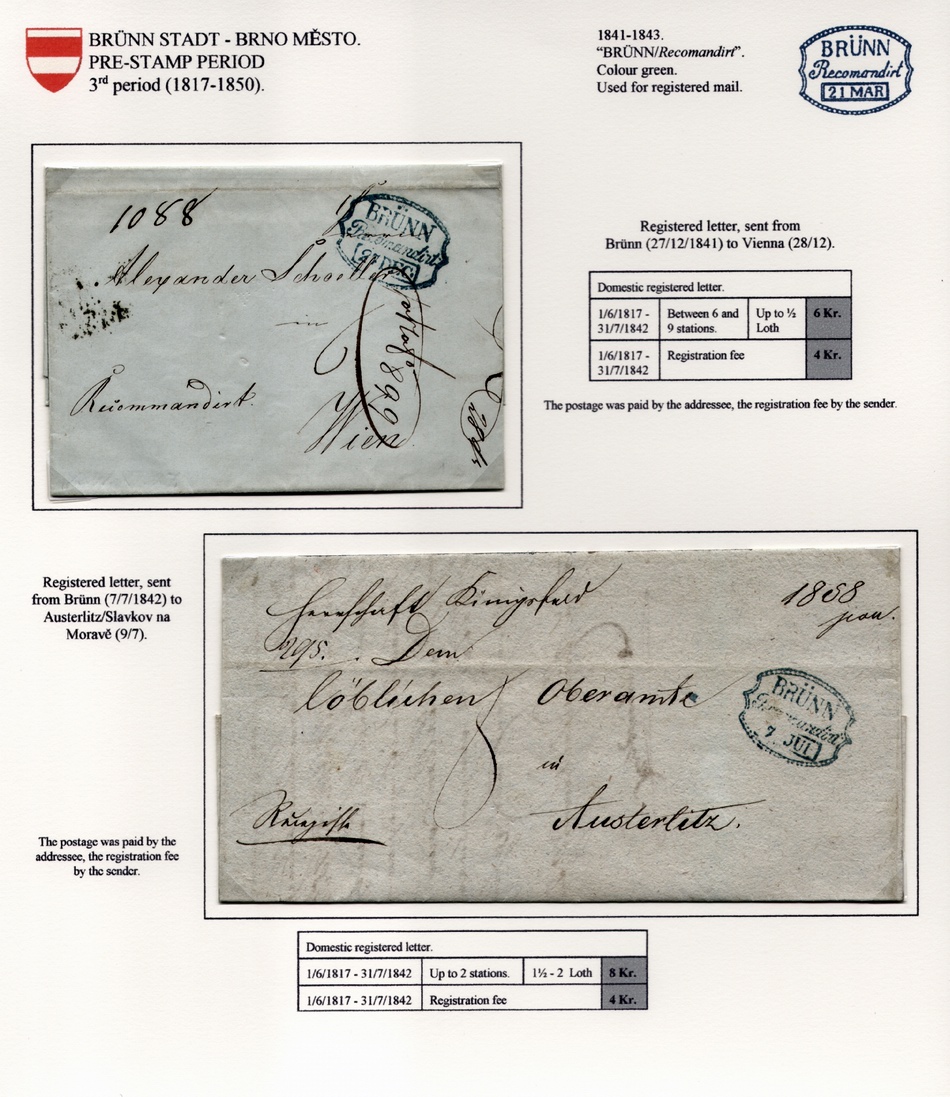 BRÜNN STADT - BRNO MĚSTO.
PRE-STAMP PERIOD
3rd period (1817-1850).
1841-1843.
“BRÜNN/Recomandirt”.
Colour green.
Used for registered mail.
BRÜNN
Recomandirt
21 MAR
1088
BRÜNN
Recomandirt
DEC
Alexander Schoeller
in
6
899
Recommandirt.
Wien
Registered letter, sent from
Brünn (27/12/1841) to Vienna (28/12).
Domestic registered letter.
1/6/1817 - 31/7/1842 Between 6 and 9 stations. Up to ½ Loth 6 Kr.
1/6/1817 - 31/7/1842 Registration fee 4 Kr.
The postage was paid by the addressee, the registration fee by the sender.
Registered letter, sent
from Brünn (7/7/1842) to
Austerlitz/Slavkov na
Moravě (9/7).
Herrschaft Königsfeld
1858
295. Dem
löblichen Oberamte
BRÜNN
Recomandirt
7 JUL
8
in
Austerlitz.
The postage was paid by the
addressee, the registration fee
by the sender.
Domestic registered letter.
1/6/1817 - 31/7/1842 Up to 2 stations. 1½ - 2 Loth 8 Kr.
1/6/1817 - 31/7/1842 Registration fee 4 Kr.